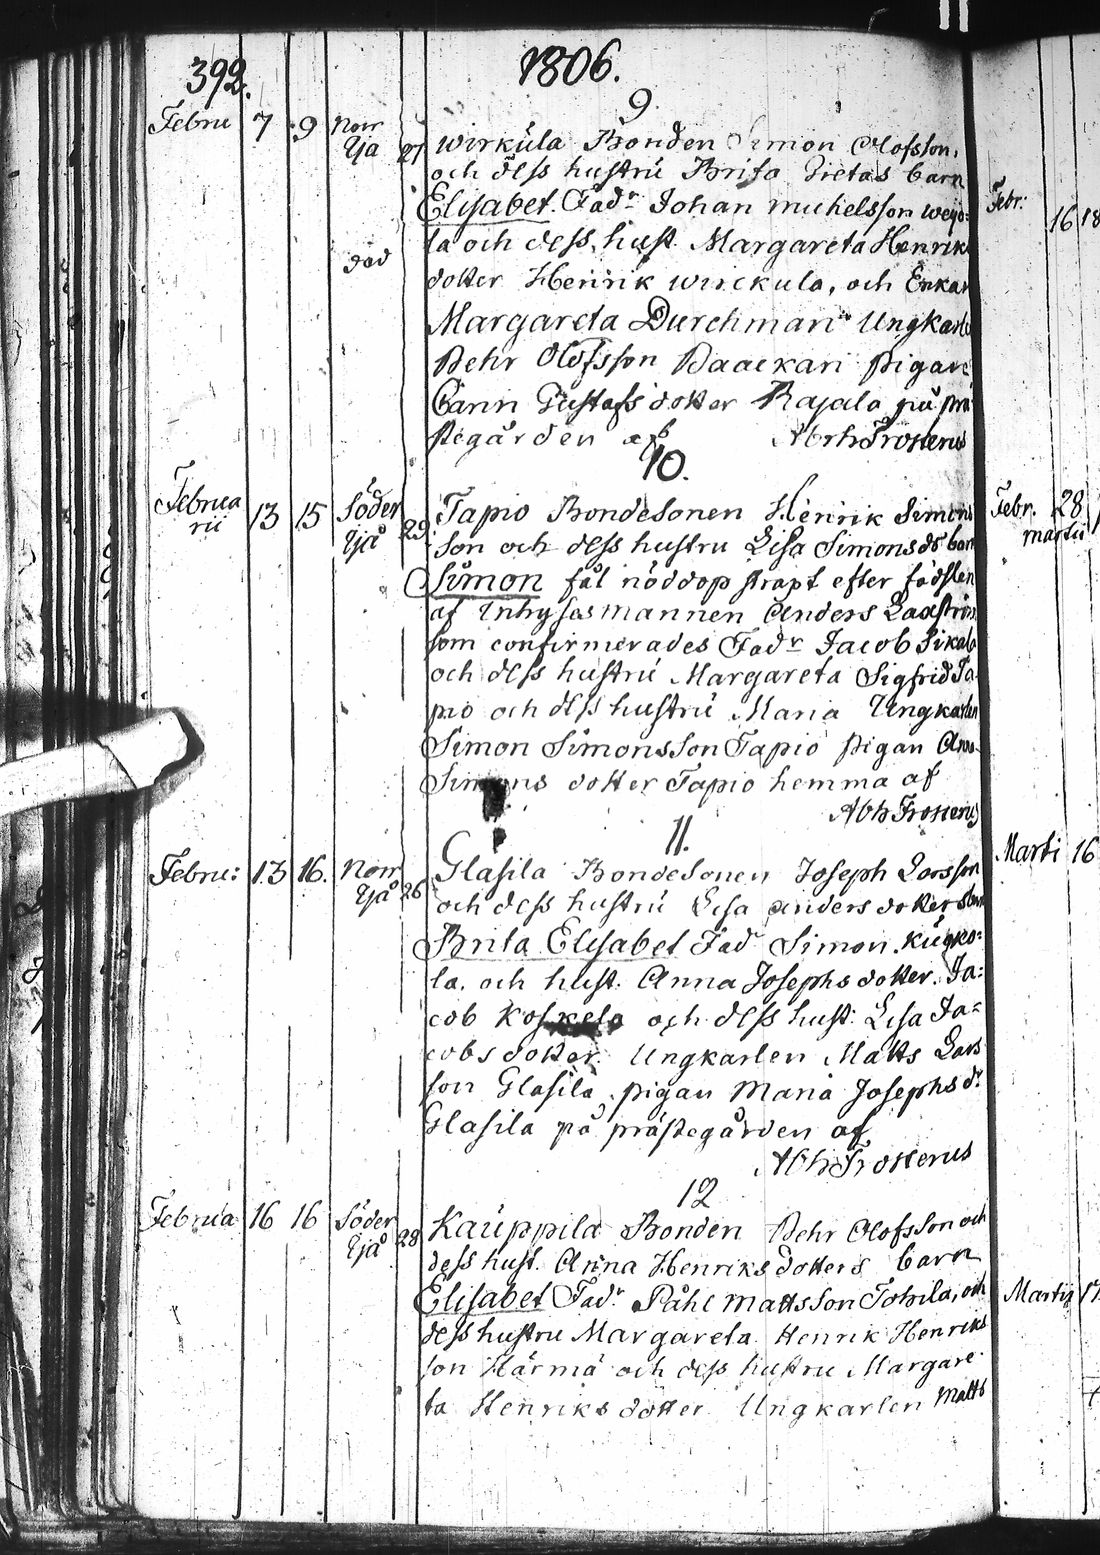 392.
1806.
9
Febru 7 9 Norr
Ijå 27 Wirkula Bonden Simon Olofsson,
och dess hustru Brita Pietas barn
Elisabet. Fadr Johan Michelsson
la och dess hust. Margareta Henriks
död
dotter Henrik Wirckula, och Enkan
Margareta Durchman Ungkarlen
Pehr Olofsson Baackari pigan
Carin Gustafs dotter Rajala på prä
stegården af Abrh Frosterus
10.
Februa
rii 13 15 Söder
Ijå 29 Tapio Bondesonen Henrik Simons
son och dess hustru Lisa Simonsdr barn
Simon fål nöddop strapt efter födslen
af Inhysesmannen Anders Laxström
som confirmerades Fadr Jacob Sikala
och dess hustru Margareta Sigfrid Ta
pio och dess hustru Maria Ungkarlen
Simon Simonsson Tapio pigan Anna
Simons dotter Tapio hemma af
Abh Frosterus
11.
Febru: 13 16. Norr
Ijå 26 Glasila Bondesonen Joseph Larsson
och dess hustru Lisa Anders dotter
Brita Elisabet Fadr Simon
la, och hust. Anna Josephs dotter. Ja=
cob Koskela och dess hust: Lisa Ja=
cobs dotter. Ungkarlen Matts Lars
son Glasila, pigan Maria Josephs dr
Glasila på prästegården af
Abh Frosterus
12
Februa 16 16 Söder
Ijå 28 Kauppila Bonden Pehr Olofsson och
dess hust. Anna Henriks dotters barn
Elisabet Fadr Påhl Mattsson Tohila, och
dess hustru Margareta Henrik Henriks
son Härmä och dess hustru Margare
ta Henriks dotter Ungkarlen Matts
Febr:
16 18
Febr. 28
Martii
Marti 16
Martii 17